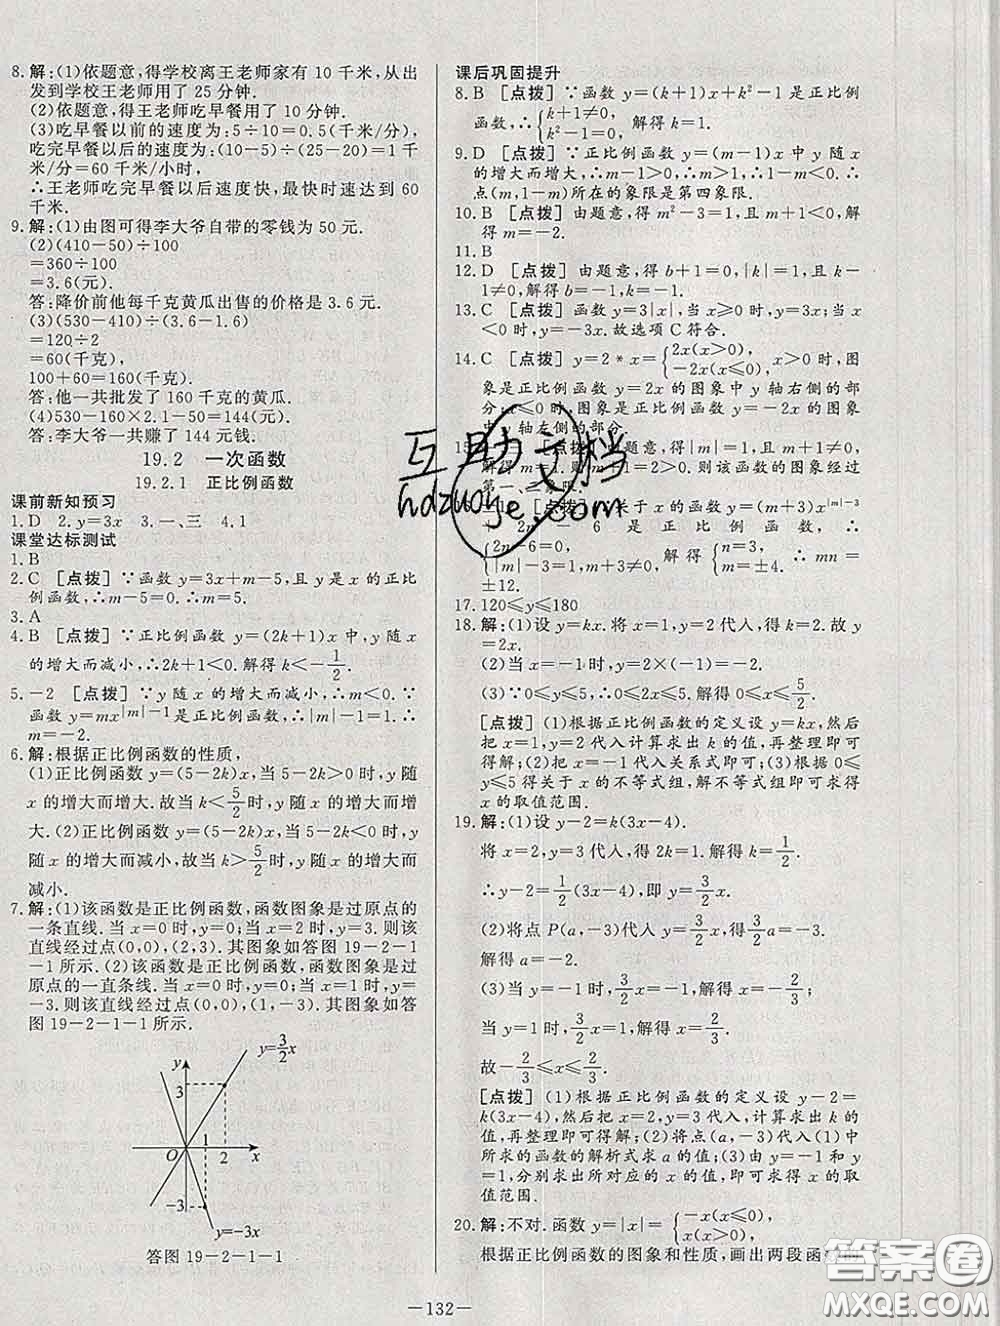 8. 解:(1)依题意,得学校离王老师家有 10 千米,从出
发到学校王老师用了 25 分钟.
(2)依题意,得王老师吃早餐用了 10 分钟.
(3)吃早餐以前的速度为:5÷10=0.5(千米/分),吃
完早餐以后的速度为:(10-5)÷(25-20)=1(千
米/分)=60 千米/小时,
∴王老师吃完早餐以后速度快,最快时速达到 60
千米.
9. 解:(1)由图可得李大爷自带的零钱为 50 元.
(2)(410-50)÷100
=360÷100
=3.6(元).
答:降价前他每千克黄瓜出售的价格是 3.6 元.
(3)(530-410)÷(3.6-1.6)
=120÷2
=60(千克),
100+60=160(千克).
答:他一共批发了 160 千克的黄瓜.
(4)530-160×2.1-50=144(元).
答:李大爷一共赚了 144 元钱.
19.2 一次函数
19.2.1 正比例函数
课前新知预习
1. D 2. y=3x 3. 一、三 4. 1
课堂达标测试
1. B
2. C [点拨] ∵函数 y=3x+m-5,且 y 是 x 的正比
例函数,∴m-5=0.∴m=5.
3. A
4. B [点拨] ∵正比例函数 y=(2k+1)x 中,y 随 x
的增大而减小,∴2k+1<0.解得 k<-1/2.
5. -2 [点拨] ∵y 随 x 的增大而减小,∴m<0.∵
函数 y=mx^{|m|-1}是正比例函数,∴|m|-1=1.∴
m=-2.
6. 解:根据正比例函数的性质,
(1)正比例函数 y=(5-2k)x,当 5-2k>0 时,y 随
x 的增大而增大.故当 k<5/2时,y 随 x 的增大而增
大.(2)正比例函数 y=(5-2k)x,当 5-2k<0 时,y
随 x 的增大而减小,故当 k>5/2时,y 随 x 的增大而
减小.
7. 解:(1)该函数是正比例函数,函数图象是过原点的
一条直线.当 x=0 时,y=0;当 x=2 时,y=3.则该
直线经过点(0,0),(2,3).其图象如答图 19-2-1
-1所示.(2)该函数是正比例函数,函数图象是过
原点的一直条线.当 x=0 时,y=0;当 x=1 时,y=
-3.则该直线经过点(0,0),(1,-3).其图象如答
图 19-2-1-1 所示.
y
y=3/2x
3
1
O
2
x
-3
y=-3x
答图 19-2-1-1
课后巩固提升
8. B [点拨] ∵函数 y=(k+1)x+k²-1 是正比例
函数,∴{k+1≠0, k²-1=0. 解得 k=1.
9. D [点拨] ∵正比例函数 y=(m-1)x 中 y 随 x
的增大而增大,∴m-1>0,∴m>1,∴1-m<0.∴
点(m,1-m)所在的象限是第四象限.
10. B [点拨] 由题意,得 m²-3=1,且 m+1<0,解
得 m=-2.
11. B
12. D [点拨] 由题意,得 b+1=0,|k|=1,且 k-
1≠0.解得 b=-1,k=-1.
13. C [点拨] 函数 y=3|x|,当 x≥0时,y=3x;当 x
<0时,y=-3x.故选项 C 符合.
14. C [点拨] y=2*x={2x(x>0), -2x(x≤0), x>0 时,图
象是正比例函数 y=2x 的图象中 y 轴右侧的部
分;x≤0 时,图象是正比例函数 y=-2x 的图象
中 y 轴左侧的部分.
15. [点拨] 由题意,得|m|=1,且 m+1≠0.
解得 m=1.则 m+1=2>0.则该函数图象经过
第一、三象限.
[点拨] 关于 x 的函数 y=(m+3)x^{|m|-3}
+ 2n - 6 是正比例函数, ∴
{2n-6=0, |m|-3=1. 解得 {n=3, m=±4. ∴ mn =
±12.
17. 120≤y≤180
18. 解:(1)设 y=kx.将 x=1,y=2 代入,得 k=2.故 y
=2x.
(2)当 x=-1 时,y=2×(-1)=-2.
(3)∵0≤y≤5,∴0≤2x≤5.解得 0≤x≤5/2.
[点拨] (1)根据正比例函数的定义设 y=kx,然后
把 x=1,y=2 代入计算求出 k 的值,再整理即可
得解;(2)把 x=-1 代入关系式即可;(3)根据 0≤
y≤5 得关于 x 的不等式组,解不等式组即可求得
x 的取值范围.
19. 解:(1)设 y-2=k(3x-4).
将 x=2,y=3 代入,得 2k=1.解得 k=1/2.
∴y-2=1/2(3x-4),即 y=3/2x.
(2)将点 P(a,-3)代入 y=3/2x,得3/2a=-3.
解得 a=-2.
(3)当 y=-1 时,3/2x=-1,解得 x=-2/3.
当 y=1 时,3/2x=1,解得 x=2/3.
故-2/3≤x≤2/3.
[点拨] (1)根据正比例函数的定义设 y-2=
k(3x-4),然后把 x=2,y=3 代入,计算求出 k 的
值,再整理即可得解;(2)将点(a,-3)代入(1)中
所求的函数的解析式求 a 的值;(3)由 y=-1 和 y
=1,分别求出所对应的 x 的值,即可求得 x 的取
值范围.
20. 解:不对.函数 y=|x|={-x(x≤0), x(x>0),
根据正比例函数的图象和性质,画出两段函
-132-
互助文档
hdzuoye.com
答案圈
MXQE.COM